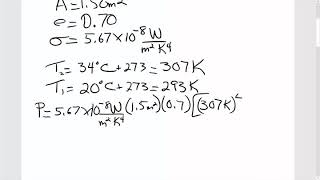 A=1.50m²
e=0.70
σ=5.67×10⁻⁸ W/m²K⁴
T₂=34°C+273=307K
T₁=20°C+273=293K
P=5.67×10⁻⁸W/m²K⁴(1.5m²)(0.7)[(307K)⁴